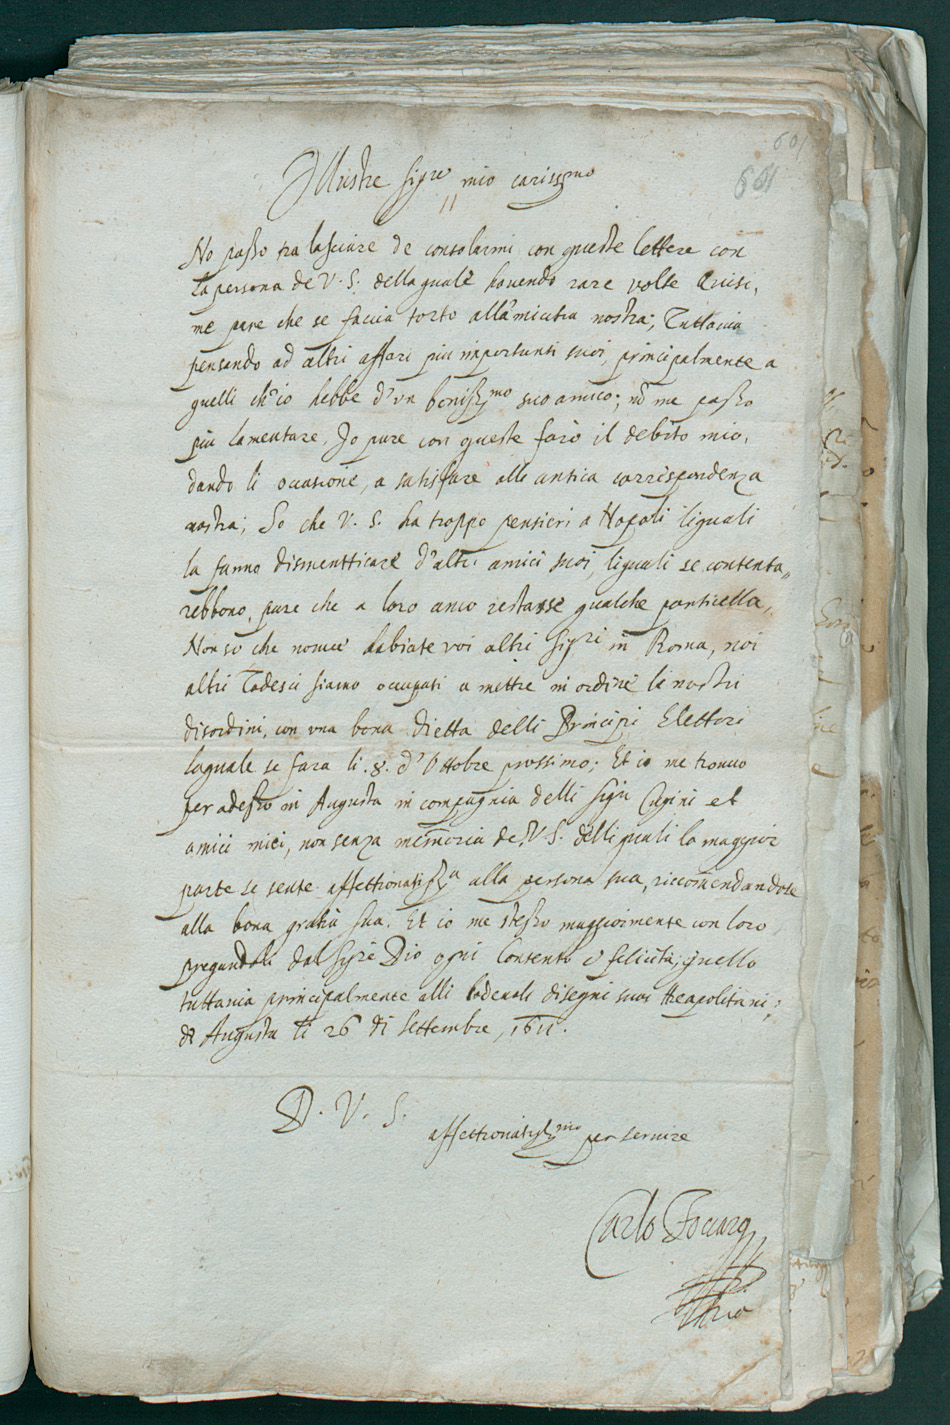 601
601
Illustre sig.re mio carissmo
No passo tralasciare de consolarmi con queste lettere con
la persona de V. S. della quale havendo rare volte avisi,
me pare che se faccia torto all'amicitia nostra; Tuttavia
pensando ad altri affari piu importanti suoi, principalmente a
quelli ch'io hebbe d'un boniss.mo suo amico; nõ me passo
piu lamentare. Io pure con queste farò il debito mio,
dando li occasione, a satisfare alle antica corrispondenza
nostra; So che V. S. ha troppo pensieri a Napoli liquali
la fanno dismentticare d'altri amici suoi, liquali se contenta„
rebbono, pure che a loro anco restasse qualche particella,
Non so che nove habiate voi altri sig.ri in Roma, noi
altri Todesci siamo occupati a mettre in ordine le nostri
disordini, con una bona Dietta delli Principi Elettori
laquale se fara li .8. d'Ottobre prossimo; Et io me trovo
per adesso in Augusta in compagnia delli sigri Cugini et
amici miei, non senza memoria de V. S. delli quali la maggior
parte se sente affettionatiss.a alla persona sua, riccomendandose
alla bona gratia sua. Et io me stesso maggiormente con loro
pregandoli dal sig.re Dio ogni Contento e felicità; quello
tuttavia principalmente alli lodevoli disegni suoi Neapolitani;
di Augusta li 26 di Settembre, 1611.
D. V. S.
affettionatiss.mo per servire
Carlo Foccaro